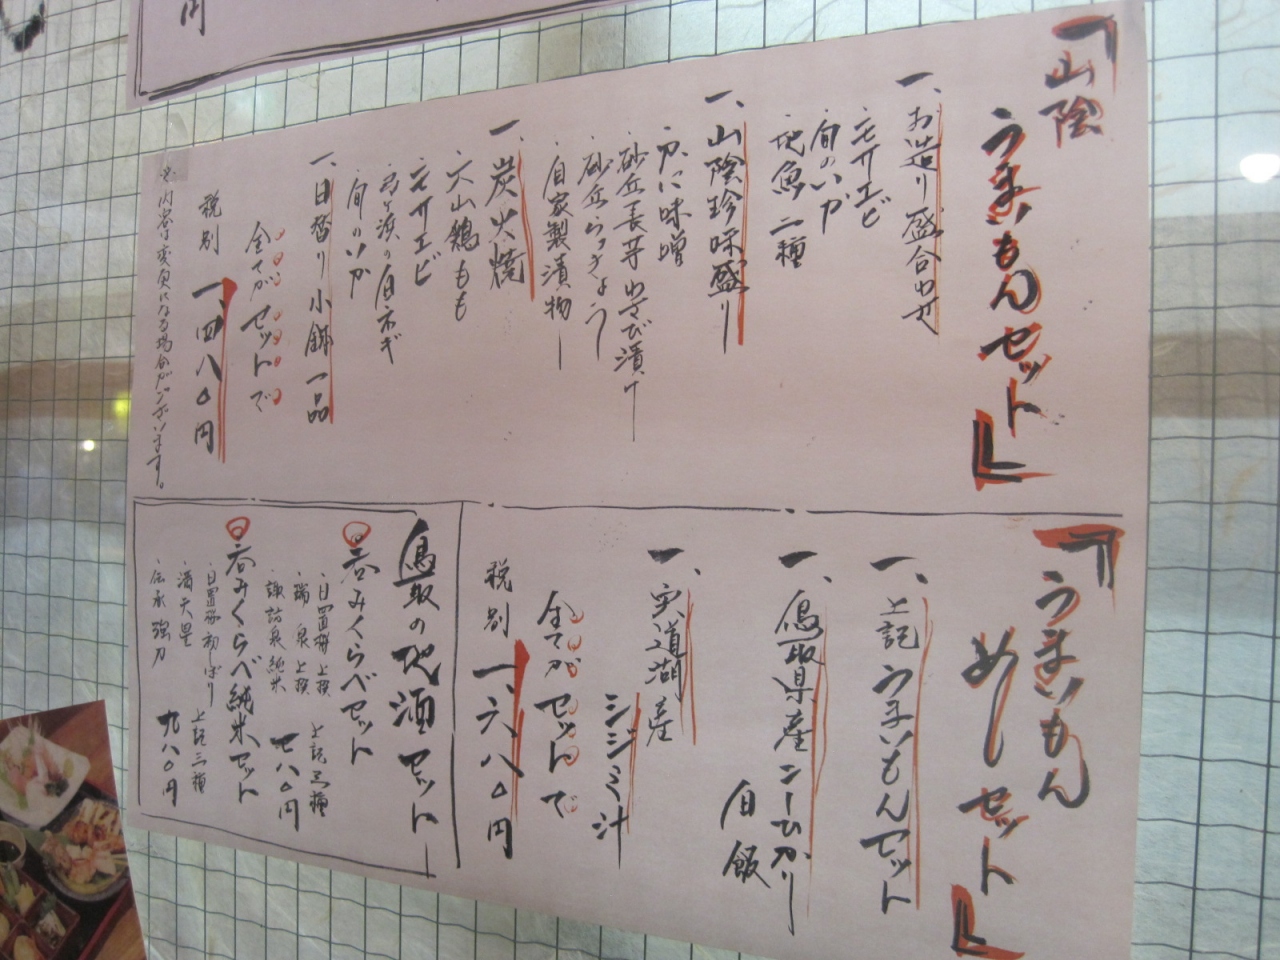 『山陰
うまいもんセット』
一、お造り盛合わせ
・モサエビ
・旬のいか
・地魚二種
一、山陰珍味盛り
・かに味噌
・砂丘長芋わさび漬け
・砂丘らっきょう
・自家製漬物
一、炭火焼
・大山鶏もも
・モサエビ
・弓ヶ浜の白ネギ
・旬のいか
一、日替り小鉢一品
全てがセットで
税別 一、四八〇円
※内容が変更になる場合がございます。
『うまいもん
めしセット』
一、上記うまいもんセット
一、鳥取県産コシヒカリ
白飯
一、宍道湖産
シジミ汁
全てがセットで
税別 一、六八〇円
鳥取の地酒セット
呑みくらべセット
・日置桜 上撰
・瑞泉 上撰
・諏訪泉 純米
上記三種
七八〇円
呑みくらべ純米セット
・日置桜 初しぼり
・満天星
・伝承強力
上記三種
九八〇円